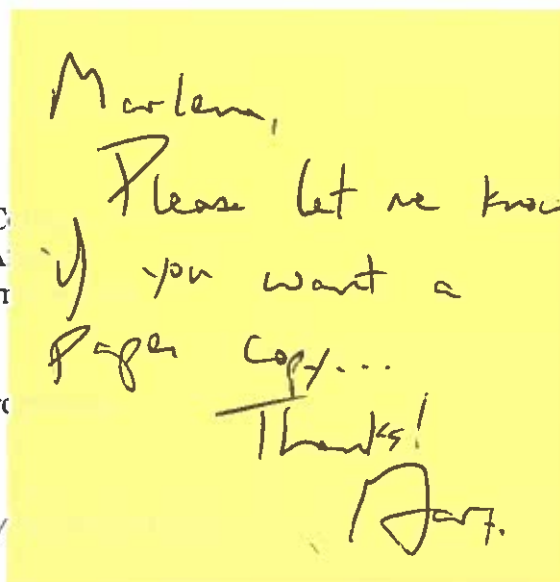 Marlena,
Please let me know
if you want a
Paper Copy...
Thanks!